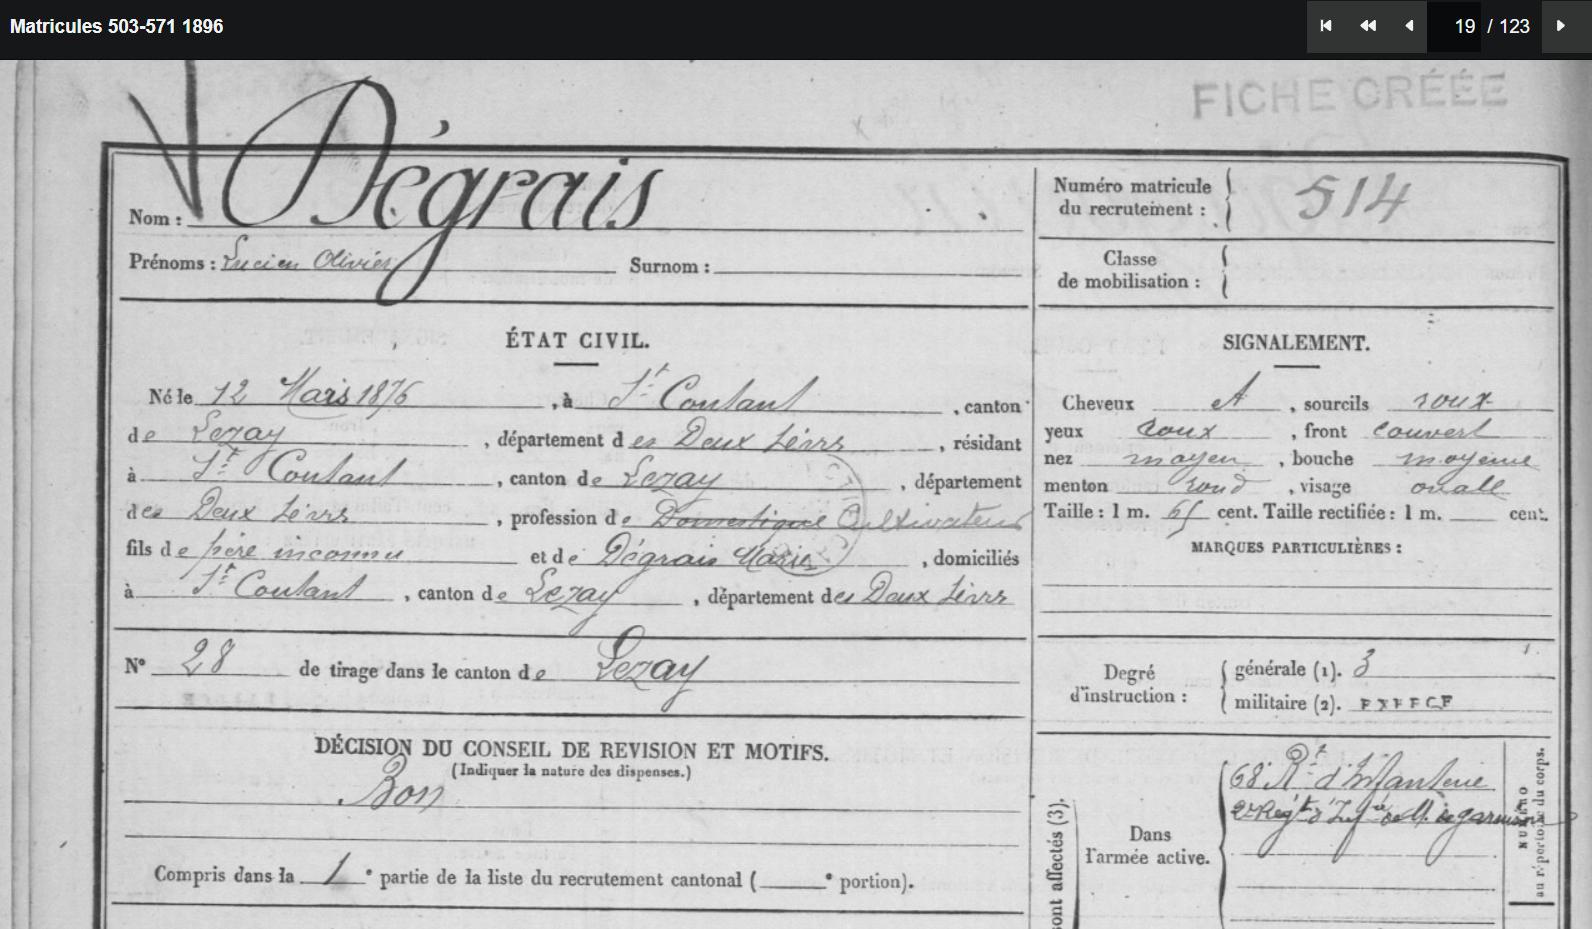 Matricules 503-571 1896
19 / 123
FICHE CRÉÉE
Nom : Dégrais
Prénoms : Lucien Olivier Surnom :
Numéro matricule du recrutement : 514
Classe de mobilisation :
ÉTAT CIVIL.
Né le 12 Mars 1876, à St Coutant, canton
de Lezay, département des Deux Sèvres, résidant
à St Coutant, canton de Lezay, département
des Deux Sèvres, profession de Domestique Cultivateur
fils de père inconnu et de Dégrais Marie, domiciliés
à St Coutant, canton de Lezay, département des Deux Sèvres
N° 28 de tirage dans le canton de Lezay
DÉCISION DU CONSEIL DE REVISION ET MOTIFS.
(Indiquer la nature des dispenses.)
Bon
Compris dans la 1e partie de la liste du recrutement cantonal ( e portion).
SIGNALEMENT.
Cheveux et, sourcils roux
yeux roux, front couvert
nez moyen, bouche moyenne
menton rond, visage ovale
Taille : 1 m. 65 cent. Taille rectifiée : 1 m. cent.
MARQUES PARTICULIÈRES :
Degré d'instruction :
générale (1). 3
militaire (2). EXERCÉ
sont affectés (3).
Dans l'armée active.
68e Rt d'Infanterie
2e Régt d'Infie de
NUMÉRO
au répertoire du corps.